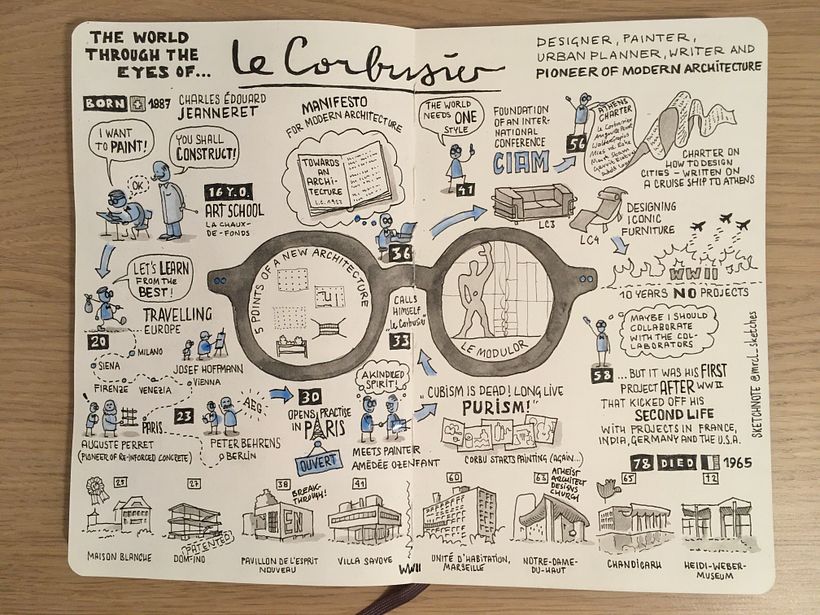 THE WORLD
THROUGH THE
EYES OF...
le Corbusier
DESIGNER, PAINTER,
URBAN PLANNER, WRITER AND
PIONEER OF MODERN ARCHITECTURE
BORN 1887 CHARLES ÉDOUARD
JEANNERET
I WANT
TO PAINT!
YOU SHALL
CONSTRUCT!
OK
16 Y.O.
ART SCHOOL
LA CHAUX-
DE-FONDS
LET'S LEARN
FROM THE
BEST!
TRAVELLING
EUROPE
20
MILANO
SIENA
FIRENZE
VENEZIA
VIENNA
JOSEF HOFFMANN
PARIS
23
AEG
AUGUSTE PERRET
(PIONEER OF RE-INFORCED CONCRETE)
PETER BEHRENS
BERLIN
30
OPENS PRACTISE
IN PARIS
OUVERT
A KINDRED
SPIRIT!
MEETS PAINTER
AMÉDÉE OZENFANT
CALLS
HIMSELF
"le Corbusier"
33
"CUBISM IS DEAD! LONG LIVE
PURISM!"
CORBU STARTS PAINTING (AGAIN...)
MANIFESTO
FOR MODERN ARCHITECTURE
TOWARDS
AN
ARCHI-
TECTURE
L.C. 1923
36
5 POINTS OF A NEW ARCHITECTURE
LE MODULOR
THE WORLD
NEEDS ONE
STYLE
41
FOUNDATION
OF AN INTER-
NATIONAL
CONFERENCE
CIAM
56
ATHENS
CHARTER
Le Corbusier
CHARTER ON
HOW TO DESIGN
CITIES - WRITTEN ON
A CRUISE SHIP TO ATHENS
LC3
LC4
DESIGNING
ICONIC
FURNITURE
WWII
10 YEARS NO PROJECTS
MAYBE I SHOULD
COLLABORATE
WITH THE COL-
LABORATORS
58
...BUT IT WAS HIS FIRST
PROJECT AFTER WWII
THAT KICKED OFF HIS
SECOND LIFE
WITH PROJECTS IN FRANCE,
INDIA, GERMANY AND THE U.S.A.
SKETCHNOTE @mrcl_sketches
78 DIED 1965
25
MAISON BLANCHE
27
DOM-INO
PATENTED
38
BREAK-
THROUGH!
EN
PAVILLON DE L'ESPRIT
NOUVEAU
41
VILLA SAVOYE
WWII
60
UNITÉ D'HABITATION,
MARSEILLE
63
ATHEIST
ARCHITECT
DESIGNS
CHURCH
NOTRE-DAME-
DU-HAUT
65
CHANDIGARH
72
HEIDI-WEBER-
MUSEUM